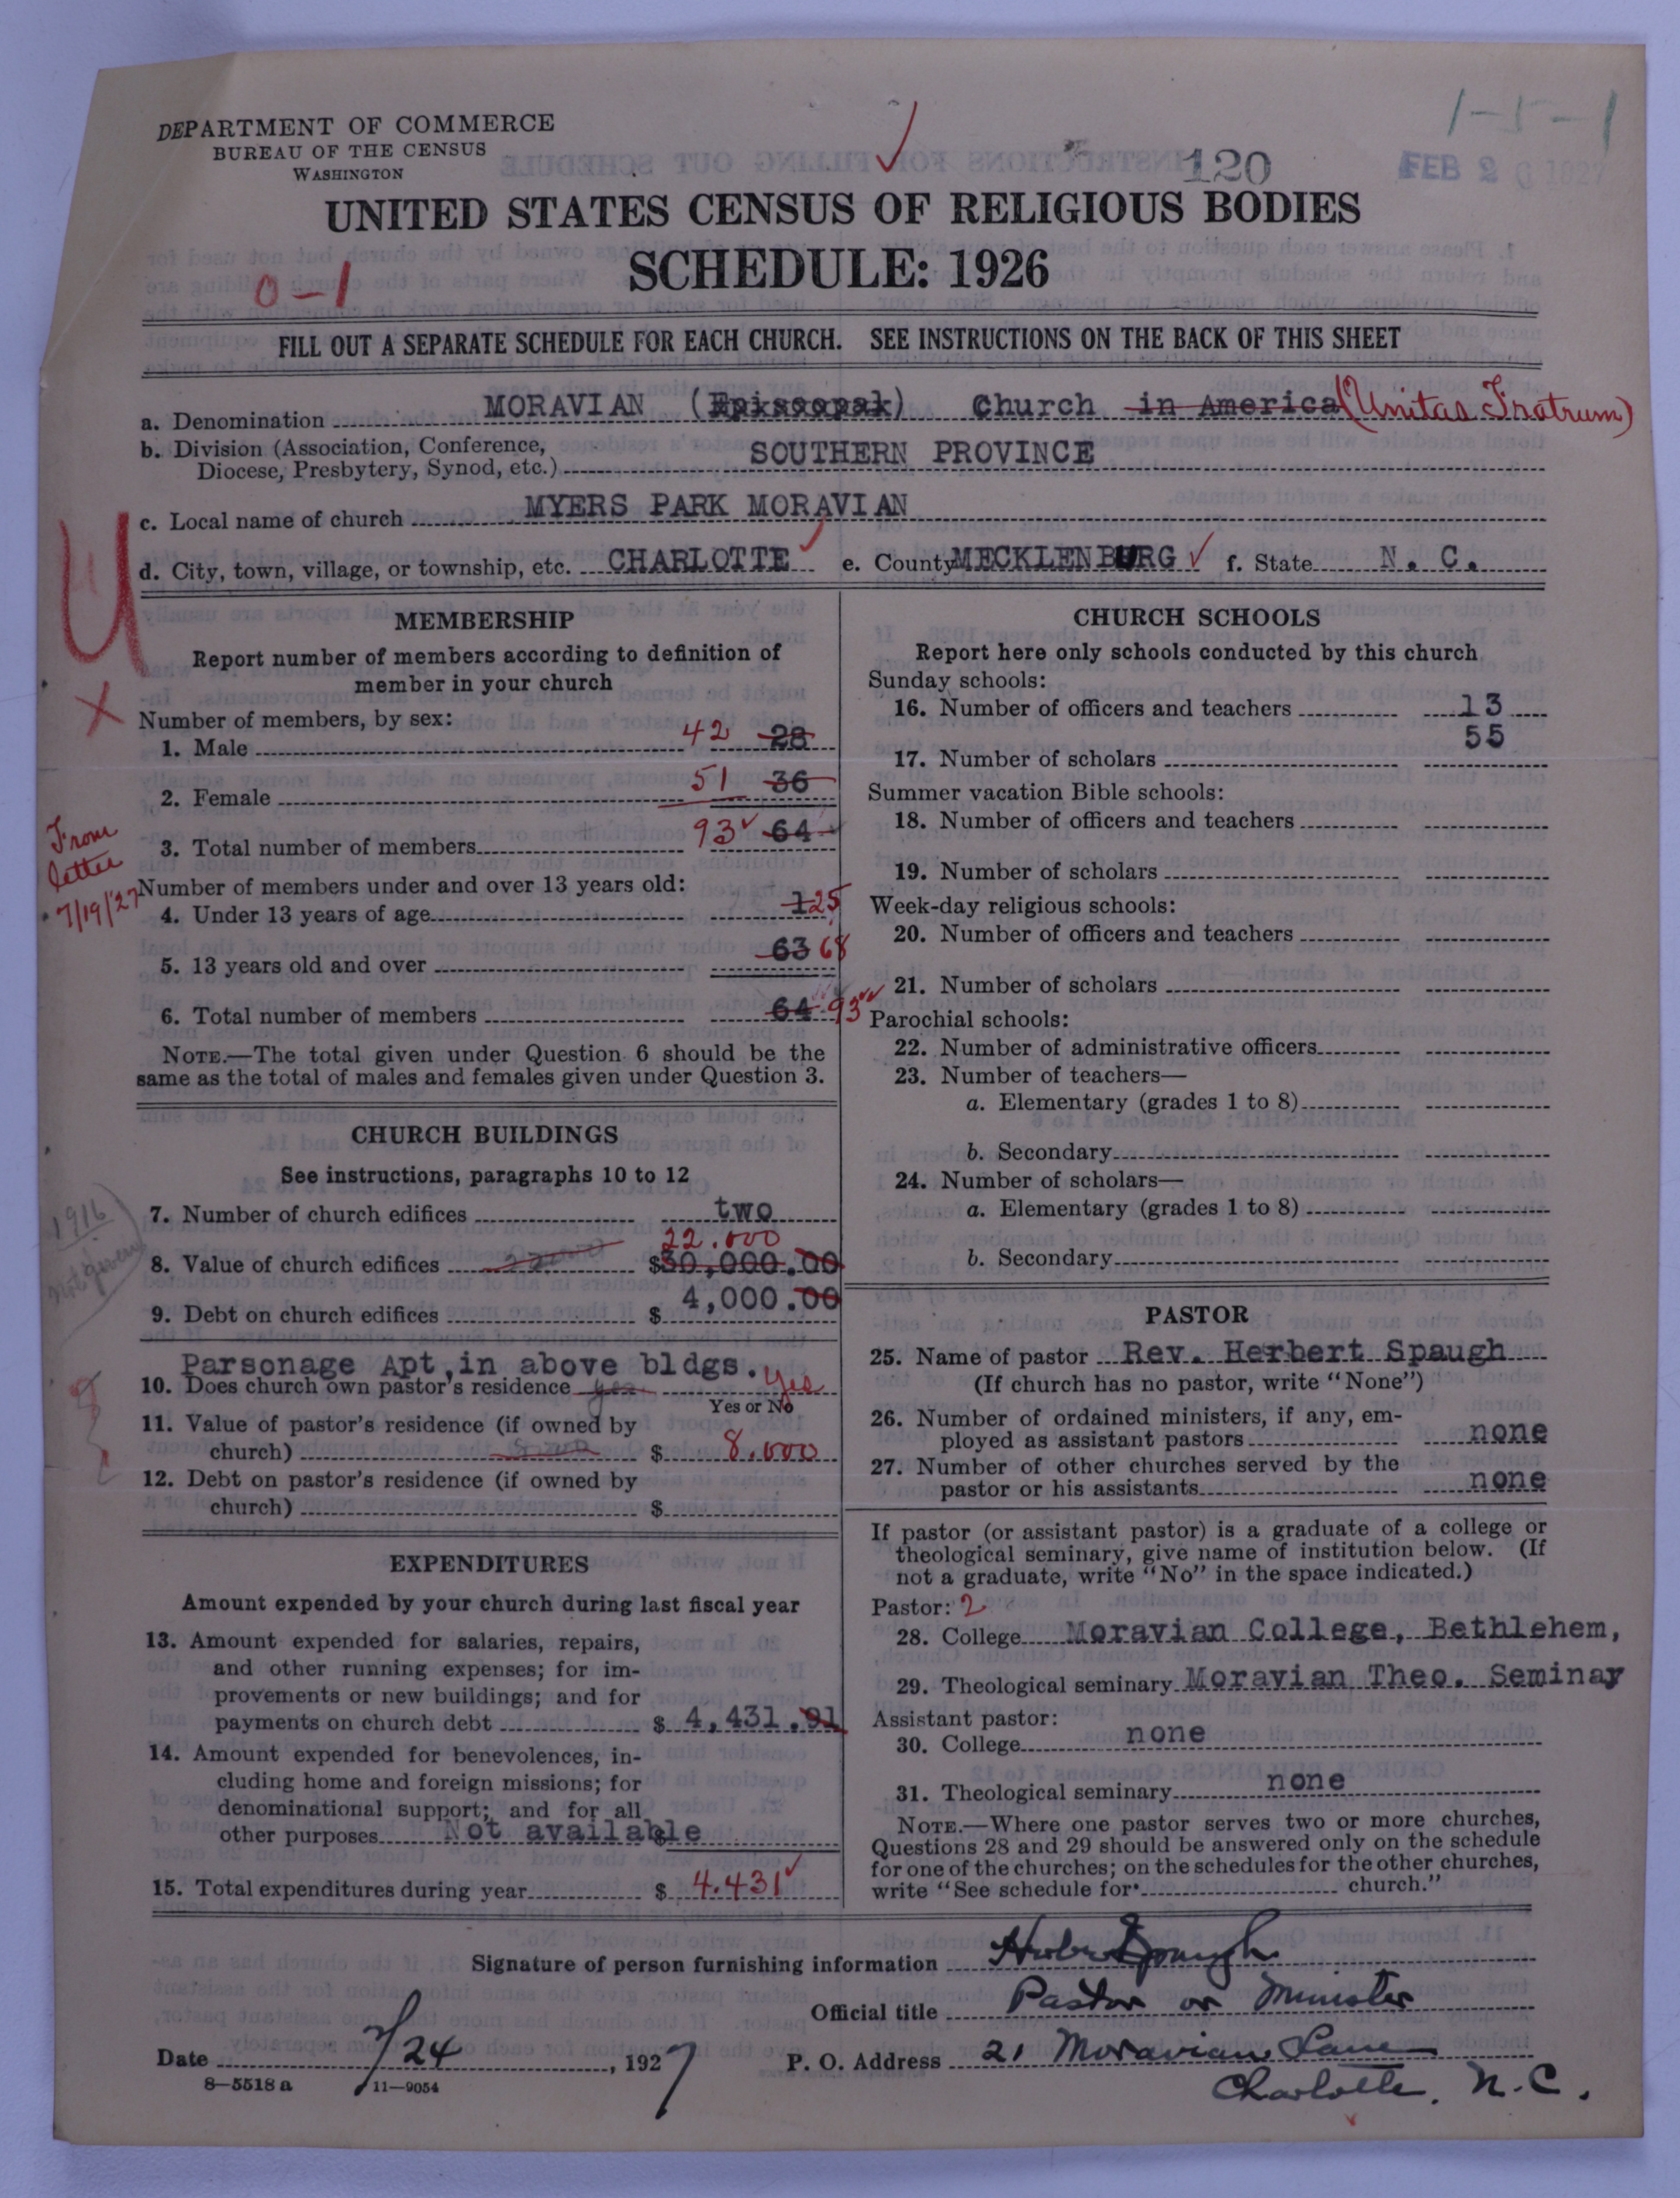 DEPARTMENT OF COMMERCE
BUREAU OF THE CENSUS
WASHINGTON
1-5-1
120
FEB 26 1927
UNITED STATES CENSUS OF RELIGIOUS BODIES
SCHEDULE: 1926
0-1
FILL OUT A SEPARATE SCHEDULE FOR EACH CHURCH. SEE INSTRUCTIONS ON THE BACK OF THIS SHEET
a. Denomination MORAVIAN (Episcopal) Church in America (Unitas Fratrum)
b. Division (Association, Conference,
Diocese, Presbytery, Synod, etc.) SOUTHERN PROVINCE
c. Local name of church MYERS PARK MORAVIAN
d. City, town, village, or township, etc. CHARLOTTE e. County MECKLENBURG f. State N. C.
MEMBERSHIP
Report number of members according to definition of
member in your church
Number of members, by sex:
1. Male 42 28
2. Female 51 36
3. Total number of members 93 64
From
letter
7/19/27
Number of members under and over 13 years old:
4. Under 13 years of age 1 25
5. 13 years old and over 63 68
6. Total number of members 64 93
NOTE.—The total given under Question 6 should be the
same as the total of males and females given under Question 3.
CHURCH BUILDINGS
See instructions, paragraphs 10 to 12
7. Number of church edifices two
1916
not given
22.000
8. Value of church edifices $30,000.00
9. Debt on church edifices $ 4,000.00
Parsonage Apt, in above bldgs.
10. Does church own pastor's residence yes Yes
Yes or No
11. Value of pastor's residence (if owned by
church) $ 8.000
12. Debt on pastor's residence (if owned by
church) $
EXPENDITURES
Amount expended by your church during last fiscal year
13. Amount expended for salaries, repairs,
and other running expenses; for im-
provements or new buildings; and for
payments on church debt $ 4,431.91
14. Amount expended for benevolences, in-
cluding home and foreign missions; for
denominational support; and for all
other purposes Not available $
15. Total expenditures during year $ 4.431
CHURCH SCHOOLS
Report here only schools conducted by this church
Sunday schools:
16. Number of officers and teachers 13
17. Number of scholars 55
Summer vacation Bible schools:
18. Number of officers and teachers
19. Number of scholars
Week-day religious schools:
20. Number of officers and teachers
21. Number of scholars
Parochial schools:
22. Number of administrative officers
23. Number of teachers—
a. Elementary (grades 1 to 8)
b. Secondary
24. Number of scholars—
a. Elementary (grades 1 to 8)
b. Secondary
PASTOR
25. Name of pastor Rev. Herbert Spaugh
(If church has no pastor, write "None")
26. Number of ordained ministers, if any, em-
ployed as assistant pastors none
27. Number of other churches served by the
pastor or his assistants none
If pastor (or assistant pastor) is a graduate of a college or
theological seminary, give name of institution below. (If
not a graduate, write "No" in the space indicated.)
Pastor: 2
28. College Moravian College, Bethlehem,
29. Theological seminary Moravian Theo. Seminay
Assistant pastor:
30. College none
31. Theological seminary none
NOTE.—Where one pastor serves two or more churches,
Questions 28 and 29 should be answered only on the schedule
for one of the churches; on the schedules for the other churches,
write "See schedule for church."
Signature of person furnishing information Herbert Spaugh
Official title Pastor or Minister
Date 2/24, 1927 P. O. Address 21 Moravian Lane
Charlotte, N.C.
8—5518 a 11—9054